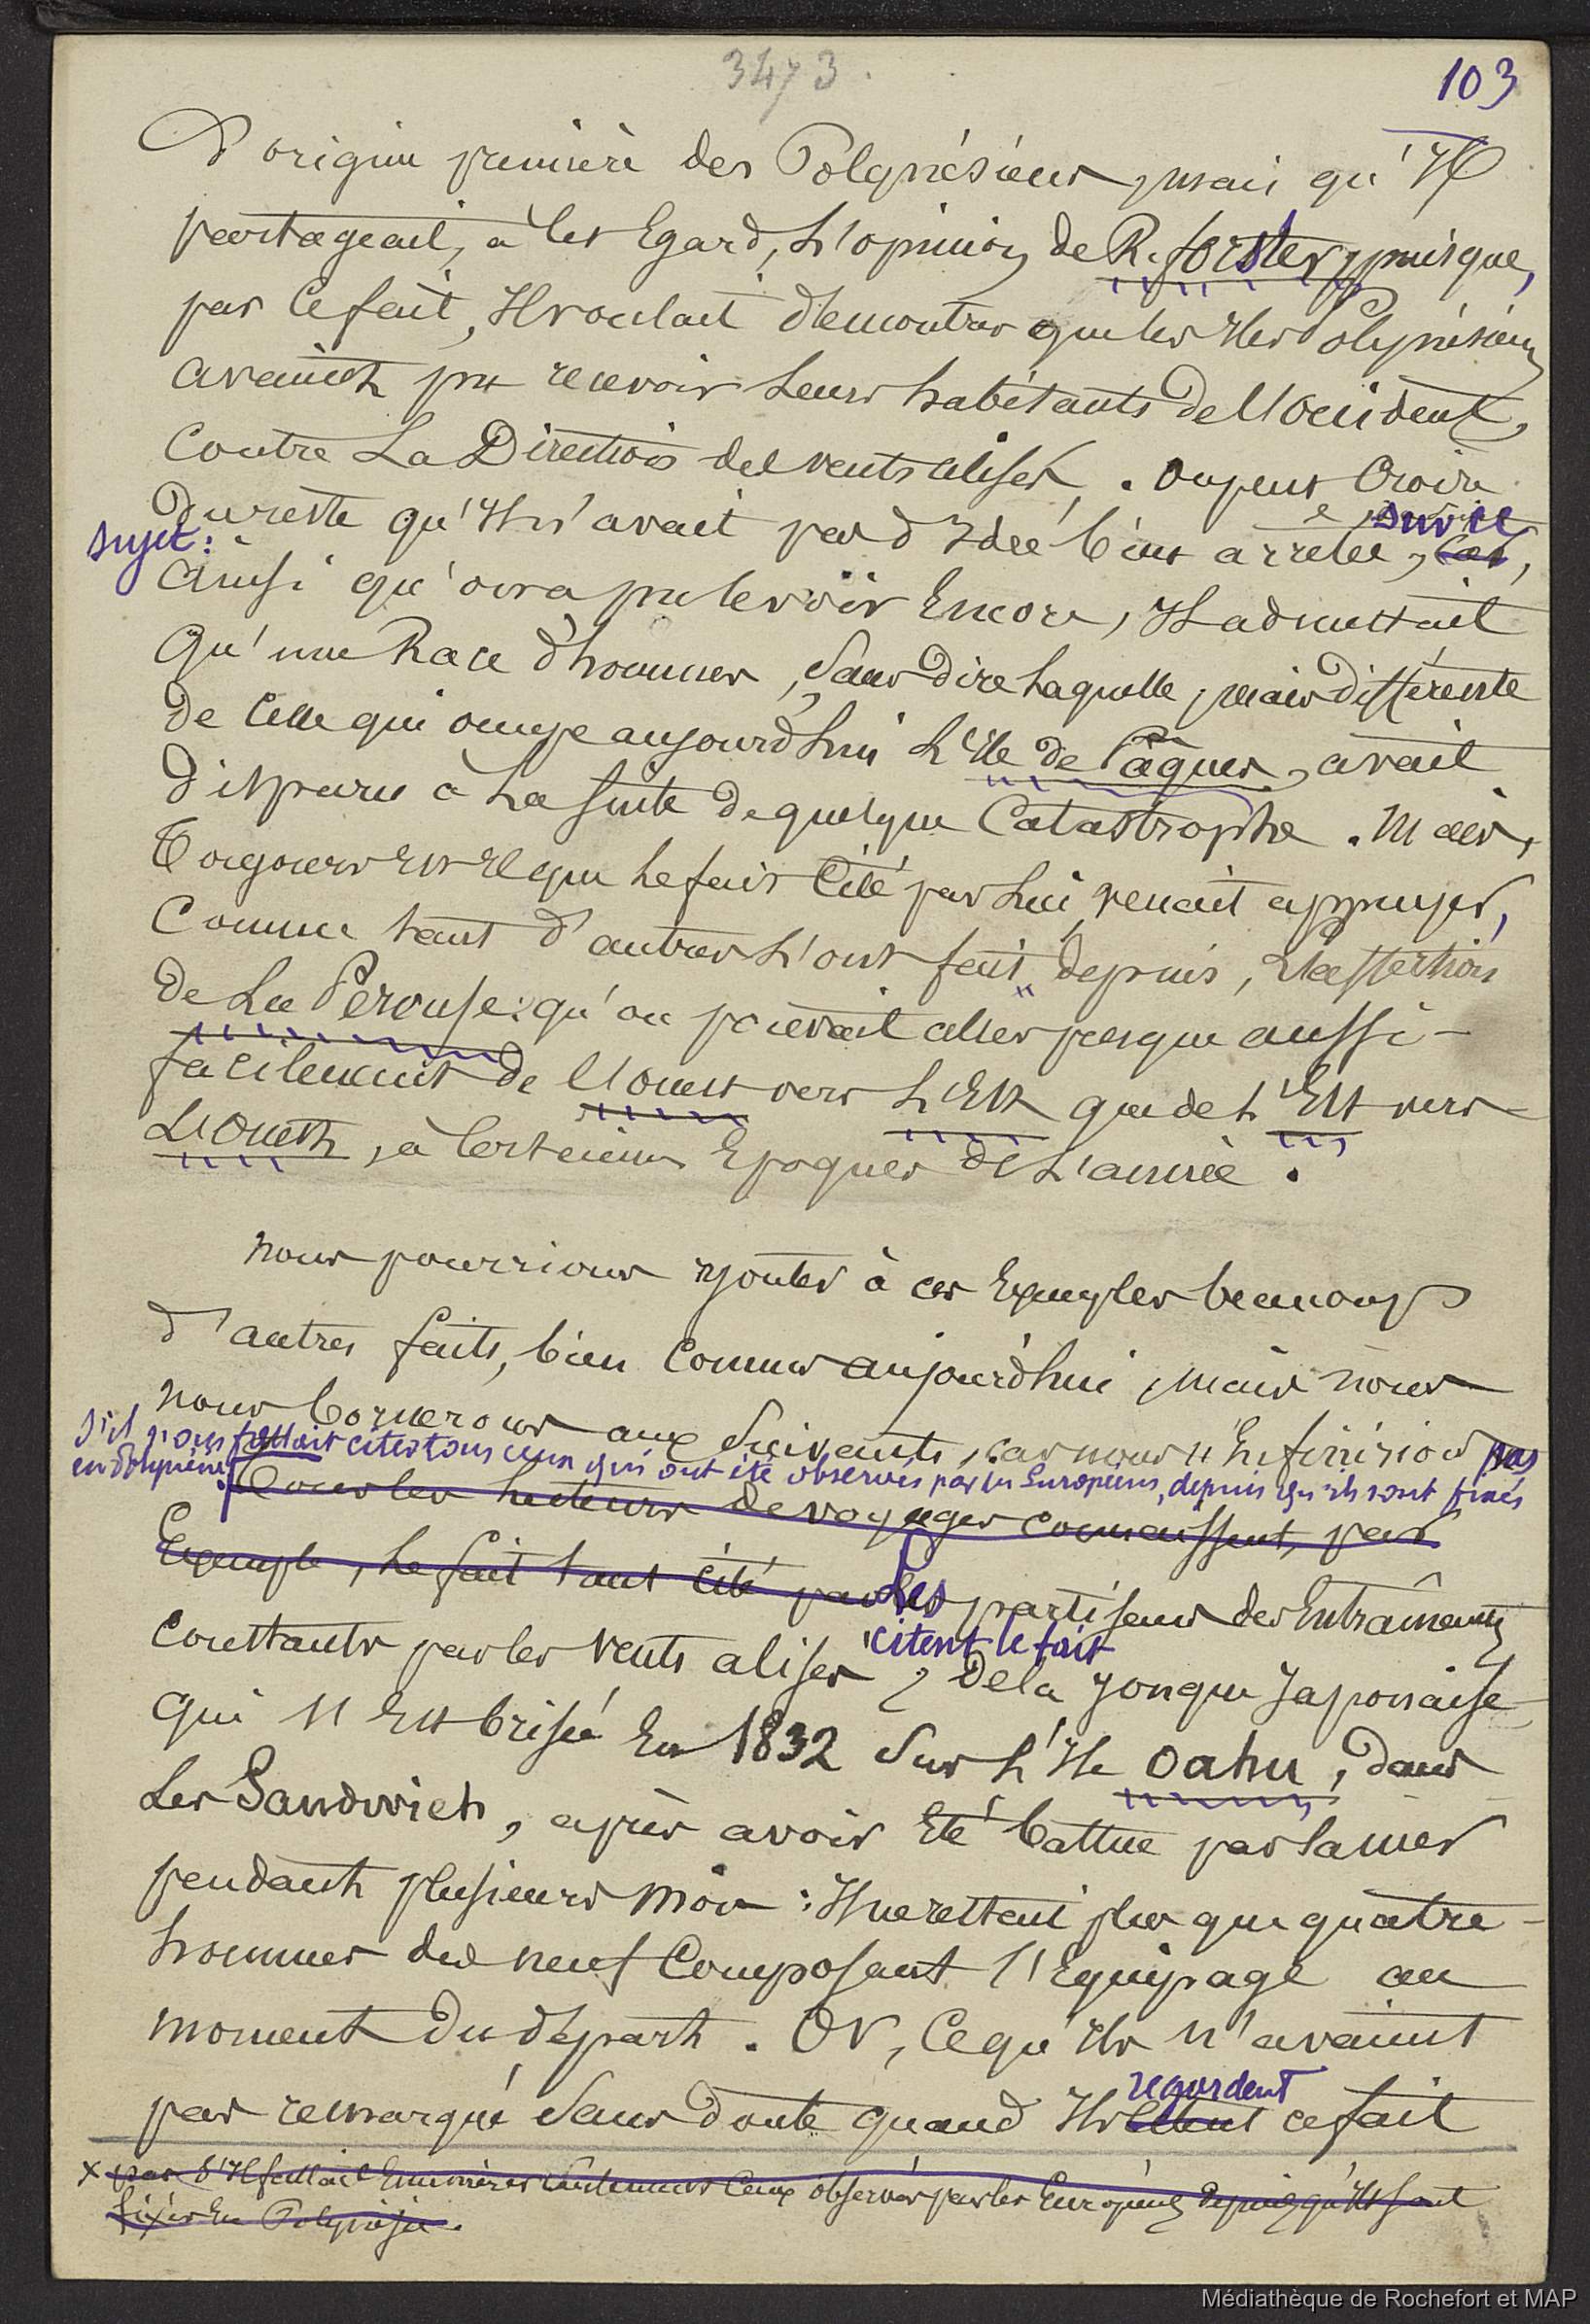 3473.
103
D'origine première des Polynésiens, mais qu'Il
partageait, à cet Egard, L'opinion de R. forster, puisque,
par ce fait, Il voulait démontrer que les Iles Polynésiennes
avaient pu recevoir Leurs habitants de l'occident,
Contre La Direction des vents alisés. On peut Croire
Du reste qu'Il n'avait pas d'Idée bien arrêtée, sur ce
sujet : car,
Ainsi qu'on a pu le voir Encore, Il admettait
Qu'une Race d'hommes, Sans Dire Laquelle, mais Différente
de Celle qui occupe aujourd'hui L'Ile de Pâques, avait
Disparu à La suite de quelque Catastrophe. Mais,
Toujours Est Il que le fait Cité par Lui, venait appuyer,
Comme tant d'autres L'ont fait, depuis, L'assertion
De La Pérouse : qu'on pouvait aller presque aussi
facilement de l'ouest vers L'Est que de L'Est vers
L'Ouest, à Certaines Epoques de L'année.
Nous pourrions ajouter à ces Exemples beaucoup
d'autres faits, bien Connus aujourd'hui, mais nous
nous bornerons aux Suivants, car nous n'En finirions pas
s'il nous fallait citer tous ceux qui ont été observés par les Européens, depuis qu'ils sont fixés
en Polynésie.
Tous les lecteurs de voyages connaissent, par
Exemple, Le fait tant cité par Les partisans des Entraînements
Constants par les vents alisés, citent le fait De la Jonque Japonaise
Qui s'Est brisée En 1832 Sur L'Ile Oahu, dans
Les Sandwich, après avoir Eté battue par la mer
pendant plusieurs mois : Il ne restait plus que quatre
hommes des neuf Composant l'Equipage au
moment du départ. Or, Ce qu'Ils n'avaient
pas remarqué Sans Doute quand Ils regardent ce fait
x pas S'Il fallait Enumérer Seulement Ceux observés par les Européens Depuis qu'Ils sont
fixés En Polynésie.
Médiathèque de Rochefort et MAP